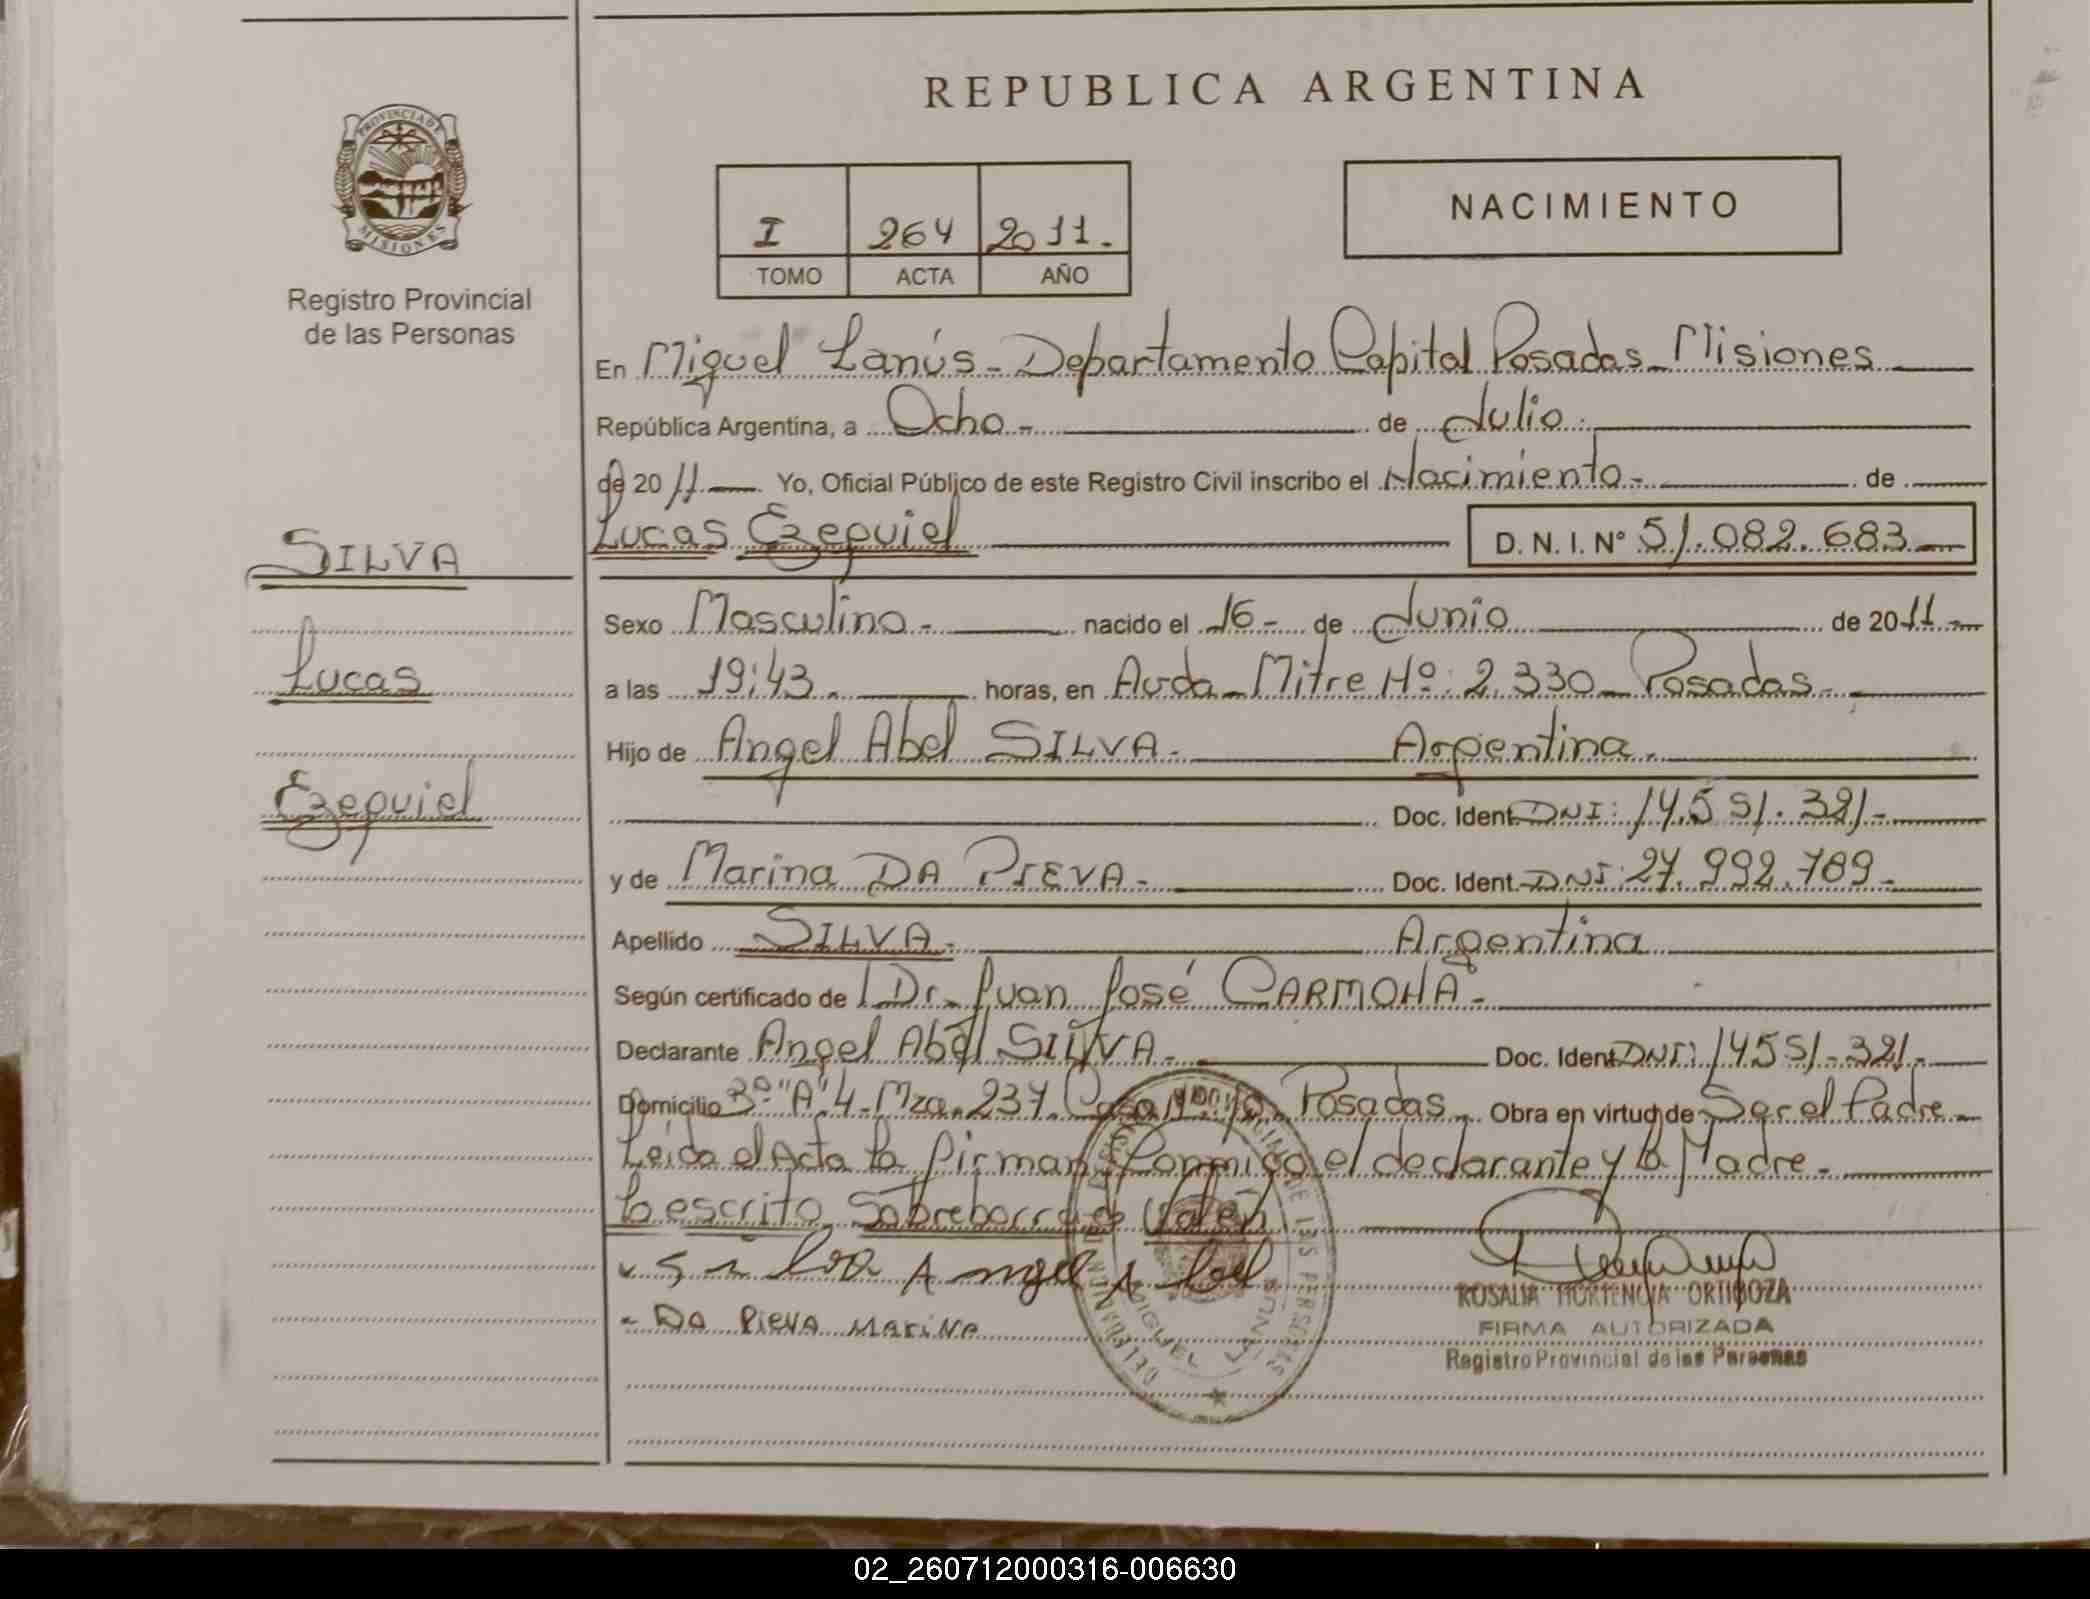 REPUBLICA ARGENTINA
PROVINCIA DE MISIONES
Registro Provincial
de las Personas
I 264 2011.
TOMO ACTA AÑO
NACIMIENTO
En Miguel Lanús - Departamento Capital Posadas - Misiones
República Argentina, a Ocho - de Julio.
de 2011. Yo, Oficial Público de este Registro Civil inscribo el Nacimiento - de
Lucas Ezequiel D. N. I. N° 51.082.683
SILVA
Lucas
Ezequiel
Sexo Masculino - nacido el 16 - de Junio de 2011 -
a las 19:43. horas, en Avda - Mitre Nº: 2.330 - Posadas -
Hijo de Angel Abel SILVA - Argentina.
Doc. Ident. DNI: 14.551.321 -
y de Marina DA PIEVA - Doc. Ident. DNI: 27.992.789 -
Apellido SILVA - Argentina
Según certificado de Dr. Juan José CARMONA -
Declarante Angel Abel SILVA - Doc. Ident DNI: 14.551.321.
Domicilio 3º "A" 4 - Mza. 237. Casa Posadas - Obra en virtud de Ser el Padre -
Leída el Acta la firman Conmigo el declarante y la Madre -
Lo escrito Sobreborrado Valen
Silva Angel Abel
- Da Pieva Marina
ROSALIA HORTENCIA ORTIGOZA
FIRMA AUTORIZADA
Registro Provincial de las Personas
MIGUEL LANUS
02_260712000316-006630